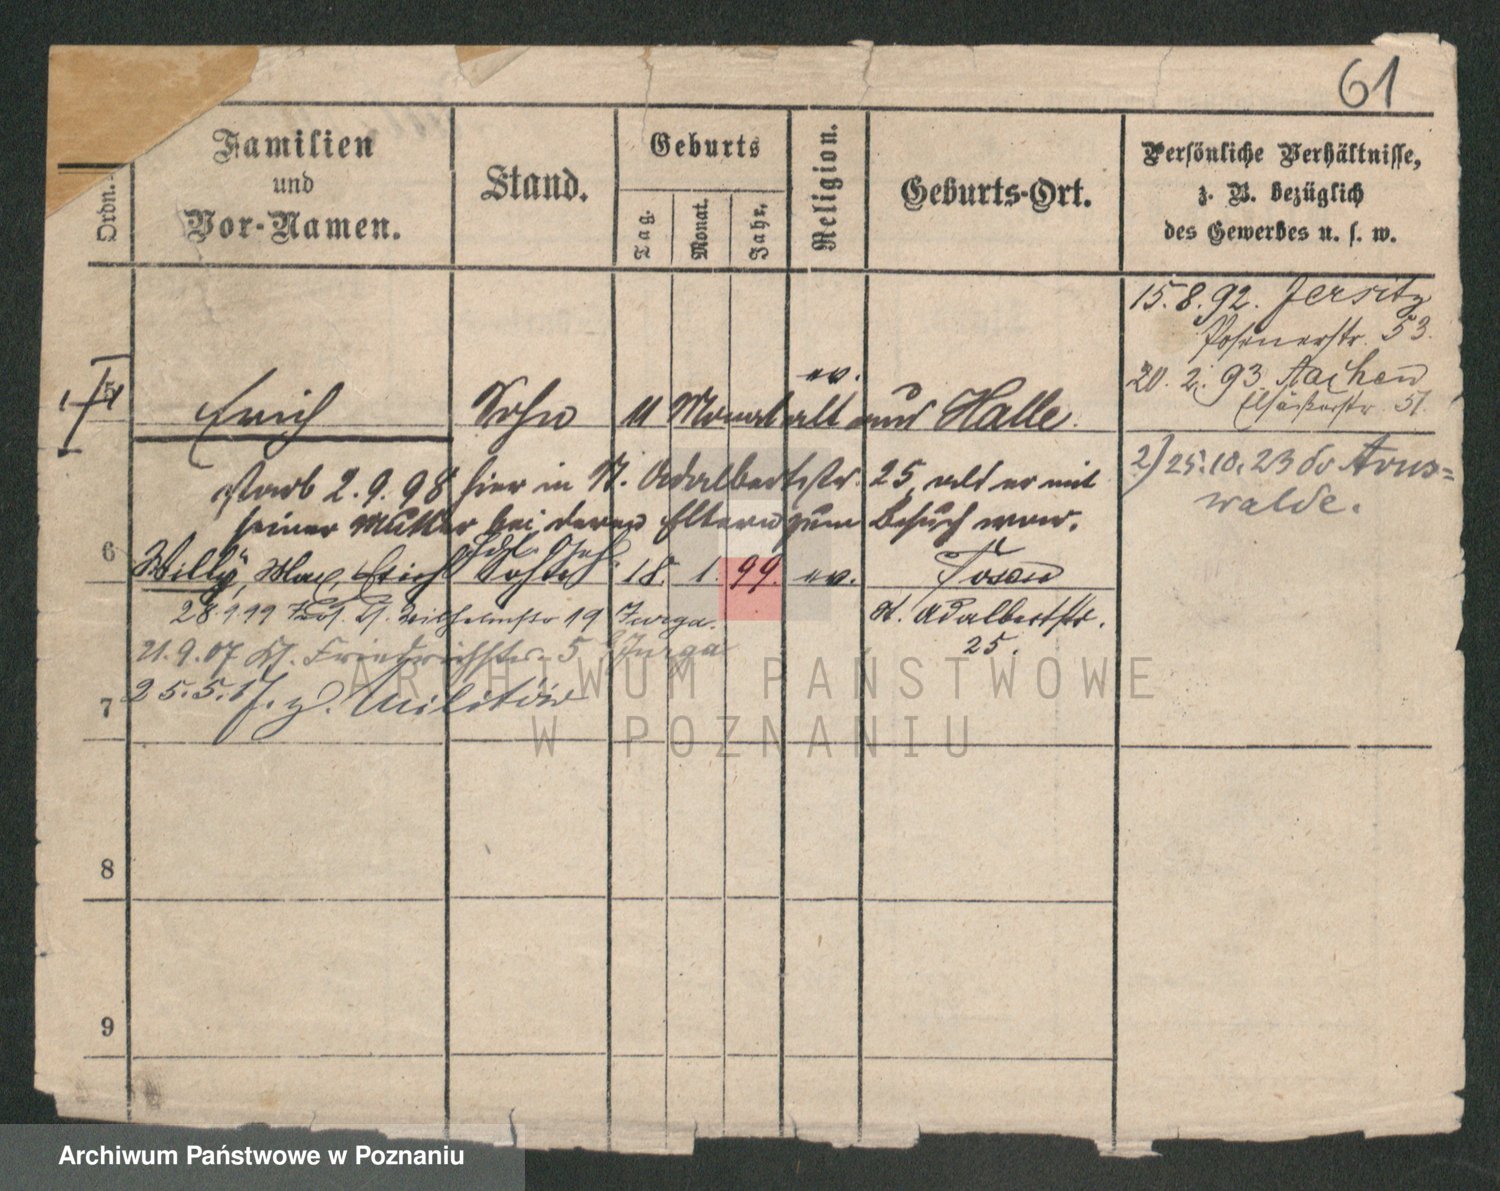 61
Ordn.
Familien
und
Vor-Namen.
Stand.
Geburts
Tag.
Monat.
Jahr.
Religion.
Geburts-Ort.
Persönliche Verhältnisse,
z. B. bezüglich
des Gewerbes u. s. w.
15.8.92. Jersitz
Posenerstr. 53.
20. 2. 93 Aachen
Elsäßerstr. 51.
5
ev.
Erich Sohn 11 Monat alt aus Halle.
starb 2.9.98 hier in St. Adalbertstr. 25, als er mit
seiner Mutter bei deren Eltern zum Besuch war.
2) 25.10.23 Arns=
walde.
6
Willy, Max, Erich Sohn 18. 1. 99. ev. Posen
St. Adalbertstr.
25.
28.1.19 19
21.9.07 Friedrichstr. 5
7
25.5.17. z. Militär
8
9
ARCHIWUM PAŃSTWOWE
W POZNANIU
Archiwum Państwowe w Poznaniu